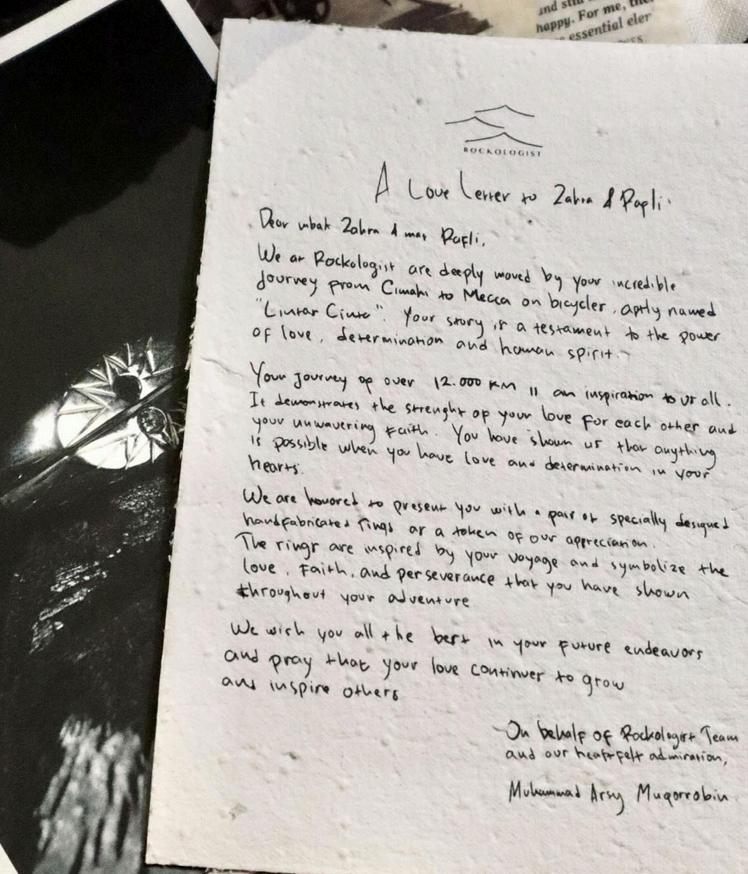 and still
happy. For me, the
essential eler
ROCKOLOGIST
A Love Letter to Zahra & Rafli.
Dear mbak Zahra & mas Rafli,
We at Rockologist are deeply moved by your incredible
Journey from Cimahi to Mecca on bicycles, aptly named
"Lintas Cinta". Your story is a testament to the power
of love, determination and human spirit.
Your Journey of over 12.000 KM is an inspiration to us all.
It demonstrates the strenght of your love for each other and
your unwavering Faith. You have shown us that anything
is possible when you have love and determination in your
hearts.
We are honored to present you with a pair of specially designed
handfabricated rings as a token of our appreciation.
The rings are inspired by your voyage and symbolize the
love, Faith, and perseverance that you have shown
throughout your adventure
We wish you all the best in your future endeavors
and pray that your love continues to grow
and inspire others
On behalf of Rockologist Team
and our heartfelt admiration,
Muhammad Arsy Muqorrobin